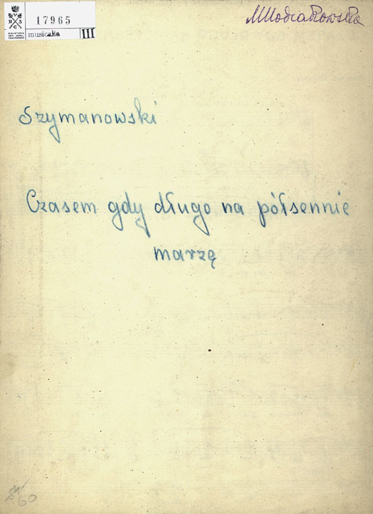 17965
muzyka III
Szymanowski
Czasem gdy długo na półsennie
marzę
60